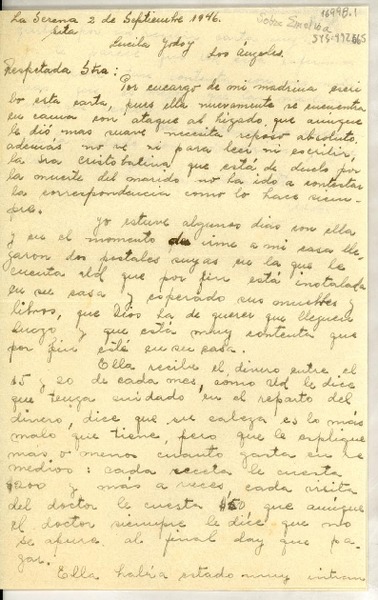 La Serena 2 de Septiembre 1946.
Srta
Lucila Godoy
Los Ángeles.
Respetada Stra:
Por encargo de mi madrina escri
bo esta carta, pues ella nuevamente se encuentra
en cama con ataque al higado, que aunque
le dió mas suave necesita reposo absoluto,
además no ve ni para leer ni escribir,
la Sra Cristobalina que está de duelo por
la muerte del marido no ha ido a contestar
la correspondencia como lo hace siem
pre.
Yo estuve algunos dias con ella
y en el momento de irme a mi casa lle
garon dos postales suyas en la que le
cuenta Ud que por fin está instalada
en su casa y esperado sus muebles y
libros, que Dios ha de querer que lleguen
luego y que está muy contenta que
por fin esté en su casa.
Ella recibe el dinero entre el
15 y 20 de cada mes, como Ud le dice
que tenga cuidado en el reparto del
dinero, dice que su cabeza es lo más
malo que tiene, pero que le explique
mas o menos cuanto gasta en re
medios: cada receta le cuesta
y más a veces cada visita
del doctor le cuesta $50 que aunque
el doctor siempre le dice que no
se apure al final hay que pa
gar.
Ella había estado muy intran